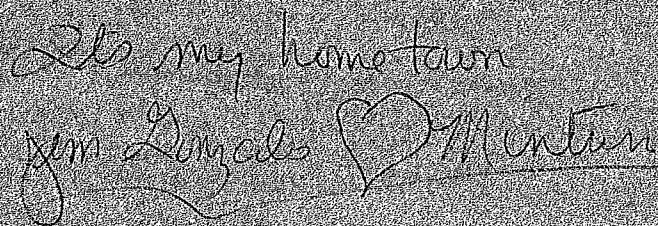 Its my hometown
Jem Gonzales ♡ Minturn